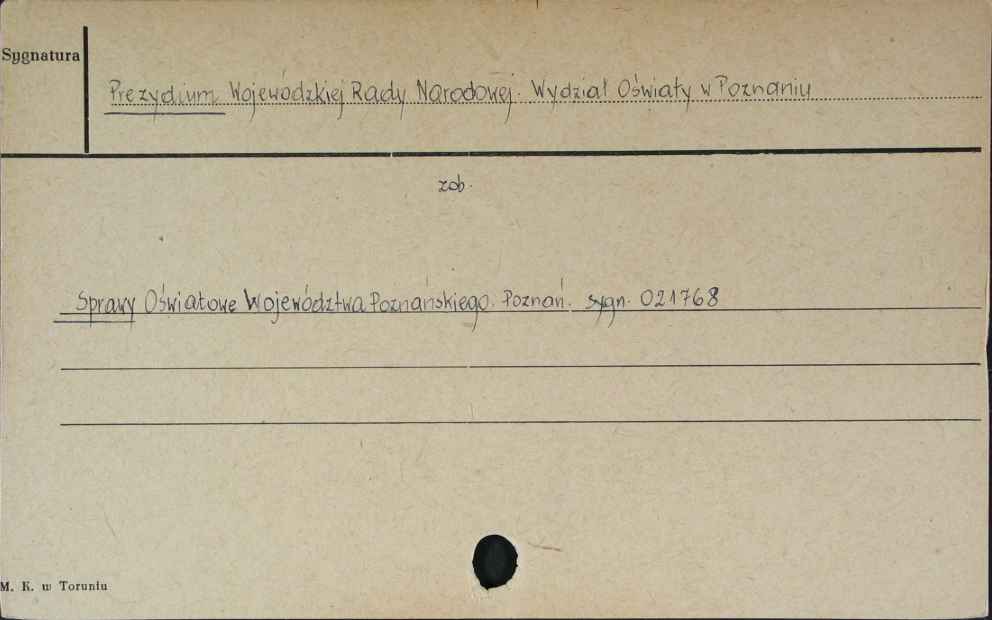 Sygnatura
Prezydium Wojewódzkiej Rady Narodowej. Wydział Oświaty w Poznaniu
zob.
Sprawy Oświatowe Województwa Poznańskiego. Poznań. sygn. 021768
M. K. w Toruniu